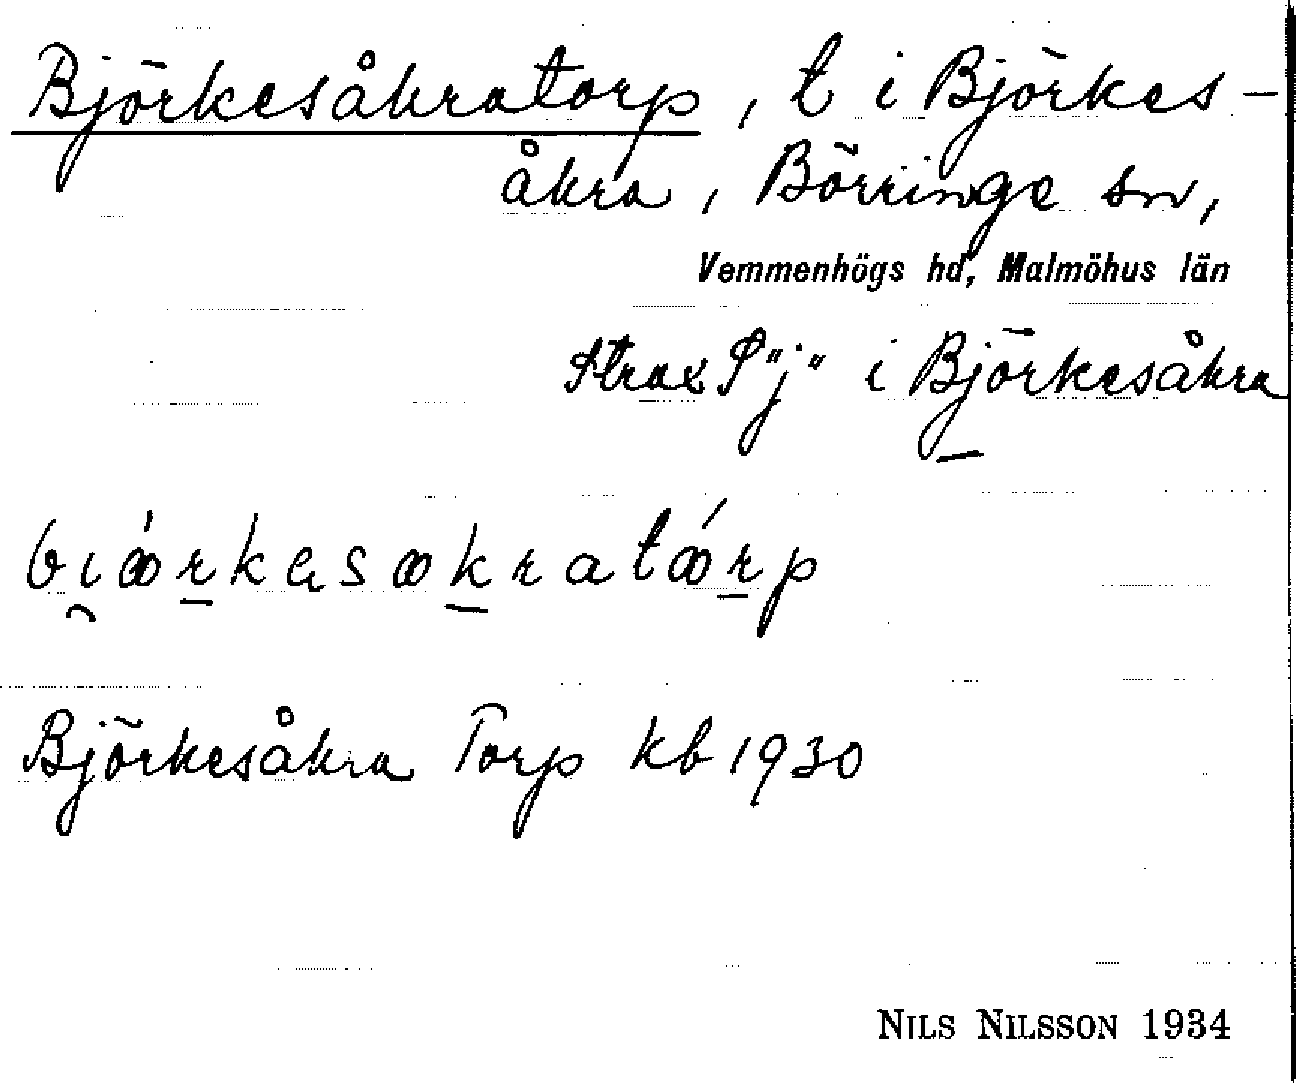 Björkesåkratorp, t i Björkes-
åkra, Börringe sn,
Vemmenhögs hd, Malmöhus län
Strax S "j" i Björkesåkra
Björkesåkra Torp kb 1930
NILS NILSSON 1934